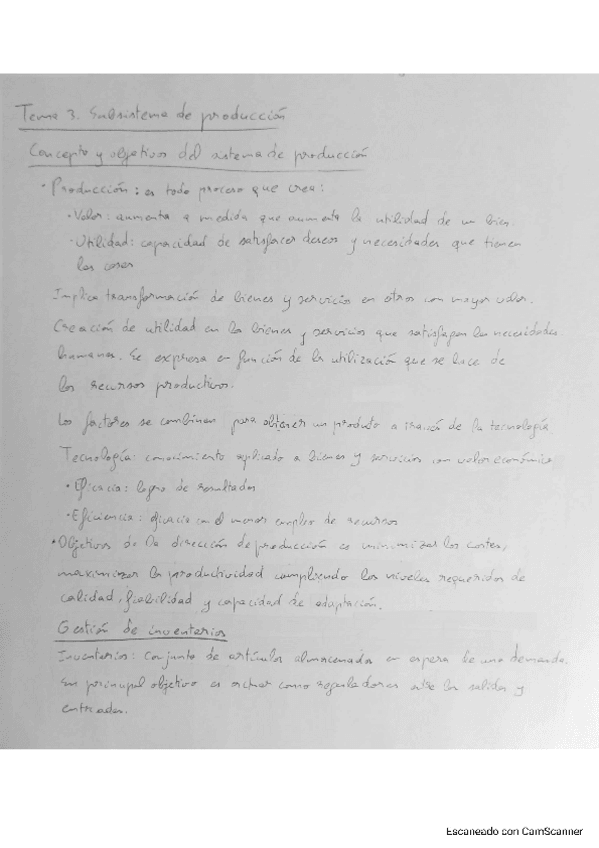 Tema 3. Subsistema de producción
Concepto y objetivos del sistema de producción
• Producción: es todo proceso que crea:
• Valor: aumenta a medida que aumenta la utilidad de un bien.
• Utilidad: capacidad de satisfacer deseos y necesidades que tienen
las cosas
Implica transformación de bienes y servicios en otros con mayor valor.
Creación de utilidad en los bienes y servicios que satisfagan las necesidades
humanas. Se expresa en función de la utilización que se hace de
los recursos productivos.
Los factores se combinan para obtener un producto a través de la tecnología
Tecnología: conocimiento aplicado a bienes y servicios con valor económico
• Eficacia: logro de resultados
• Eficiencia: eficacia con el menor empleo de recursos
• Objetivos de la dirección de producción es minimizar los costes,
maximizar la productividad cumpliendo los niveles requeridos de
calidad, fiabilidad y capacidad de adaptación.
Gestión de inventarios
Inventarios: conjunto de artículos almacenados en espera de una demanda.
Su principal objetivo es actuar como reguladores entre las salidas y
entradas.
Escaneado con CamScanner